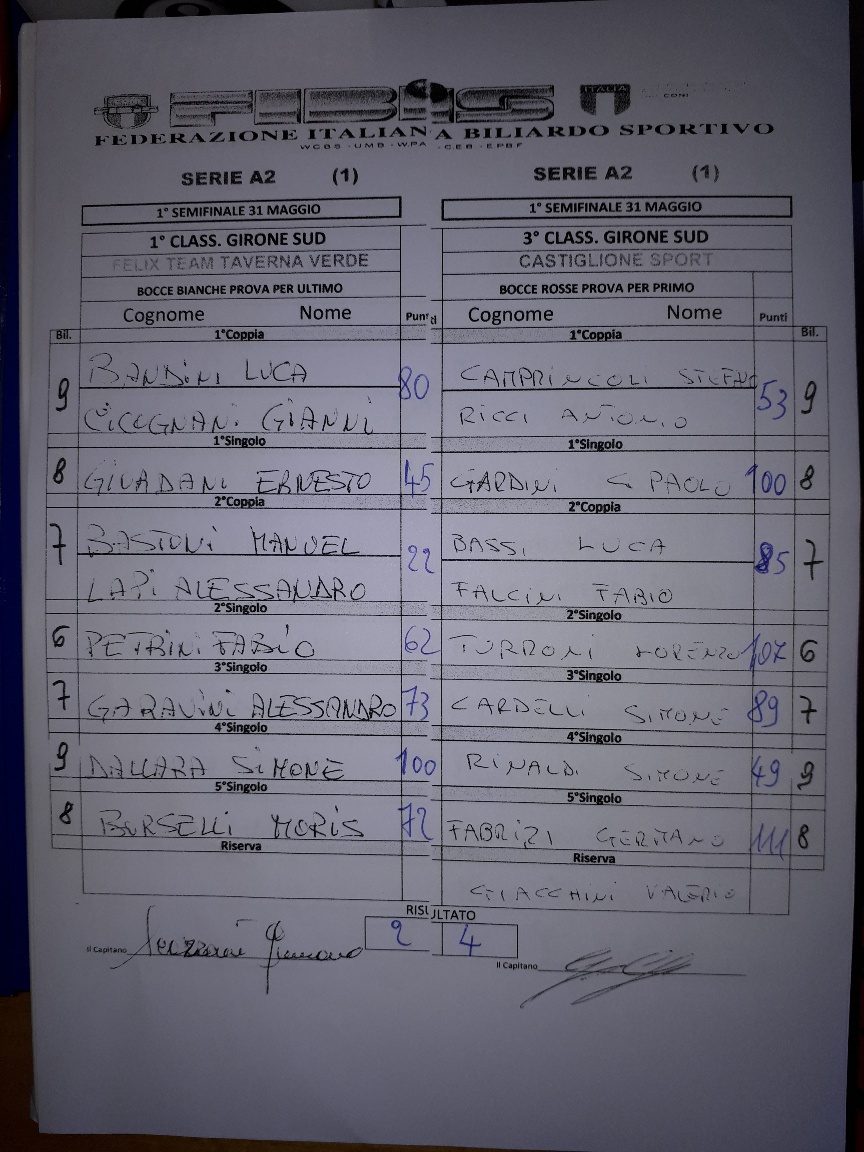 FIBIS
ITALIA
CONI
FEDERAZIONE ITALIANA BILIARDO SPORTIVO
WCBS - UMB - WPA - CEB - EPBF
SERIE A2 (1) SERIE A2 (1)
1° SEMIFINALE 31 MAGGIO 1° SEMIFINALE 31 MAGGIO
1° CLASS. GIRONE SUD 3° CLASS. GIRONE SUD
FELIX TEAM TAVERNA VERDE CASTIGLIONE SPORT
BOCCE BIANCHE PROVA PER ULTIMO BOCCE ROSSE PROVA PER PRIMO
Cognome Nome Punti Cognome Nome Punti
Bil. 1°Coppia 1°Coppia Bil.
9 BANDINI LUCA 80 CAMPRINCOLI STEFANO 53 9
CICOGNANI GIANNI RICCI ANTONIO
1°Singolo 1°Singolo
8 GIUADANI ERNESTO 45 GARDINI G PAOLO 100 8
2°Coppia 2°Coppia
7 BASTONI MANUEL 22 BASSI LUCA 85 7
LAPI ALESSANDRO FALCINI FABIO
2°Singolo 2°Singolo
6 PETRINI FABIO 62 TURRONI LORENZO 107 6
3°Singolo 3°Singolo
7 GARAVINI ALESSANDRO 73 CARDELLI SIMONE 89 7
4°Singolo 4°Singolo
9 DALLARA SIMONE 100 RINALDI SIMONE 49 9
5°Singolo 5°Singolo
8 BORSELLI MORIS 72 FABRIZI GERMANO 111 8
Riserva Riserva
GIACCHINI VALERIO
RISULTATO
2 4
Il Capitano Il Capitano